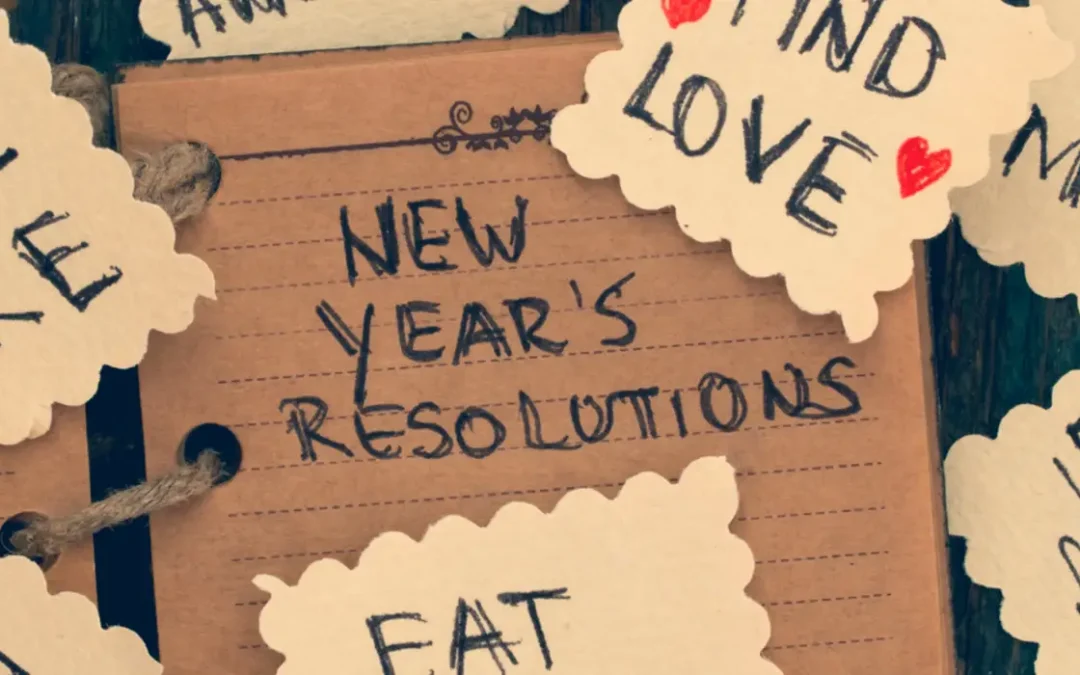 FIND
LOVE
NEW
YEAR'S
RESOLUTIONS
EAT